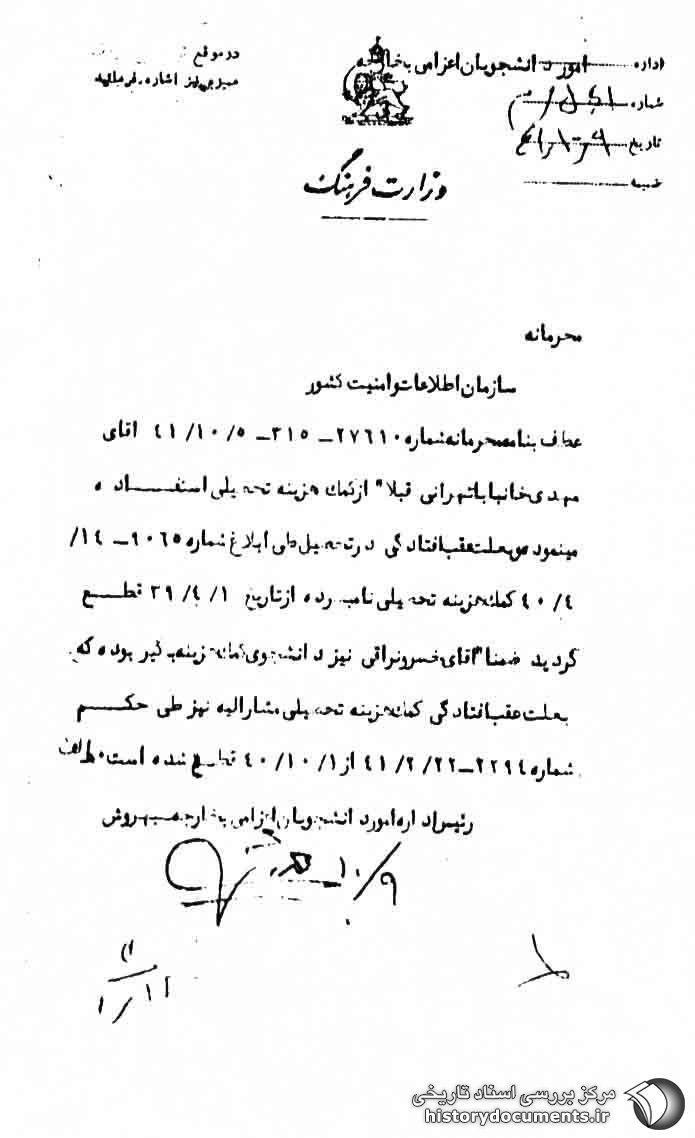 اداره امور دانشجویان اعزامی بخارجه
شماره
تاریخ
ضمیمه
در موقع
وزارت فرهنگ
محرمانه
سازمان اطلاعات و امنیت کشور
عطف بنامه محرمانه شماره ۲۷۶۱۰ـ ۳۱۵ـ ۴۱/۱۰/۵ اقای
مهدی خانبابا تهرانی قبلا" از کمک هزینه تحصیلی استفاده
مینمود بعلت عقب افتادگی در تحصیل طی ابلاغ شماره ۹۰۶۵ـ ۱۴/
۴۰/۴ کمک هزینه تحصیلی نامبرده از تاریخ ۳۹/۴/۱ قطع
گردید ضمنا" آقای خسرو نراقی نیز دانشجوی کمک هزینه بگیر بوده که
بعلت عقب افتادگی کمک هزینه تحصیلی مشارالیه نیز طی حکم
شماره ۲۲۹۴ـ ۴۱/۲/۲۲ از ۴۰/۱۰/۱ قطع شده است۰
رئیس اداره امور دانشجویان اعزامی بخارجه ـ بهروش
۱۰/۹
مرکز بررسی اسناد تاریخی
historydocuments.ir